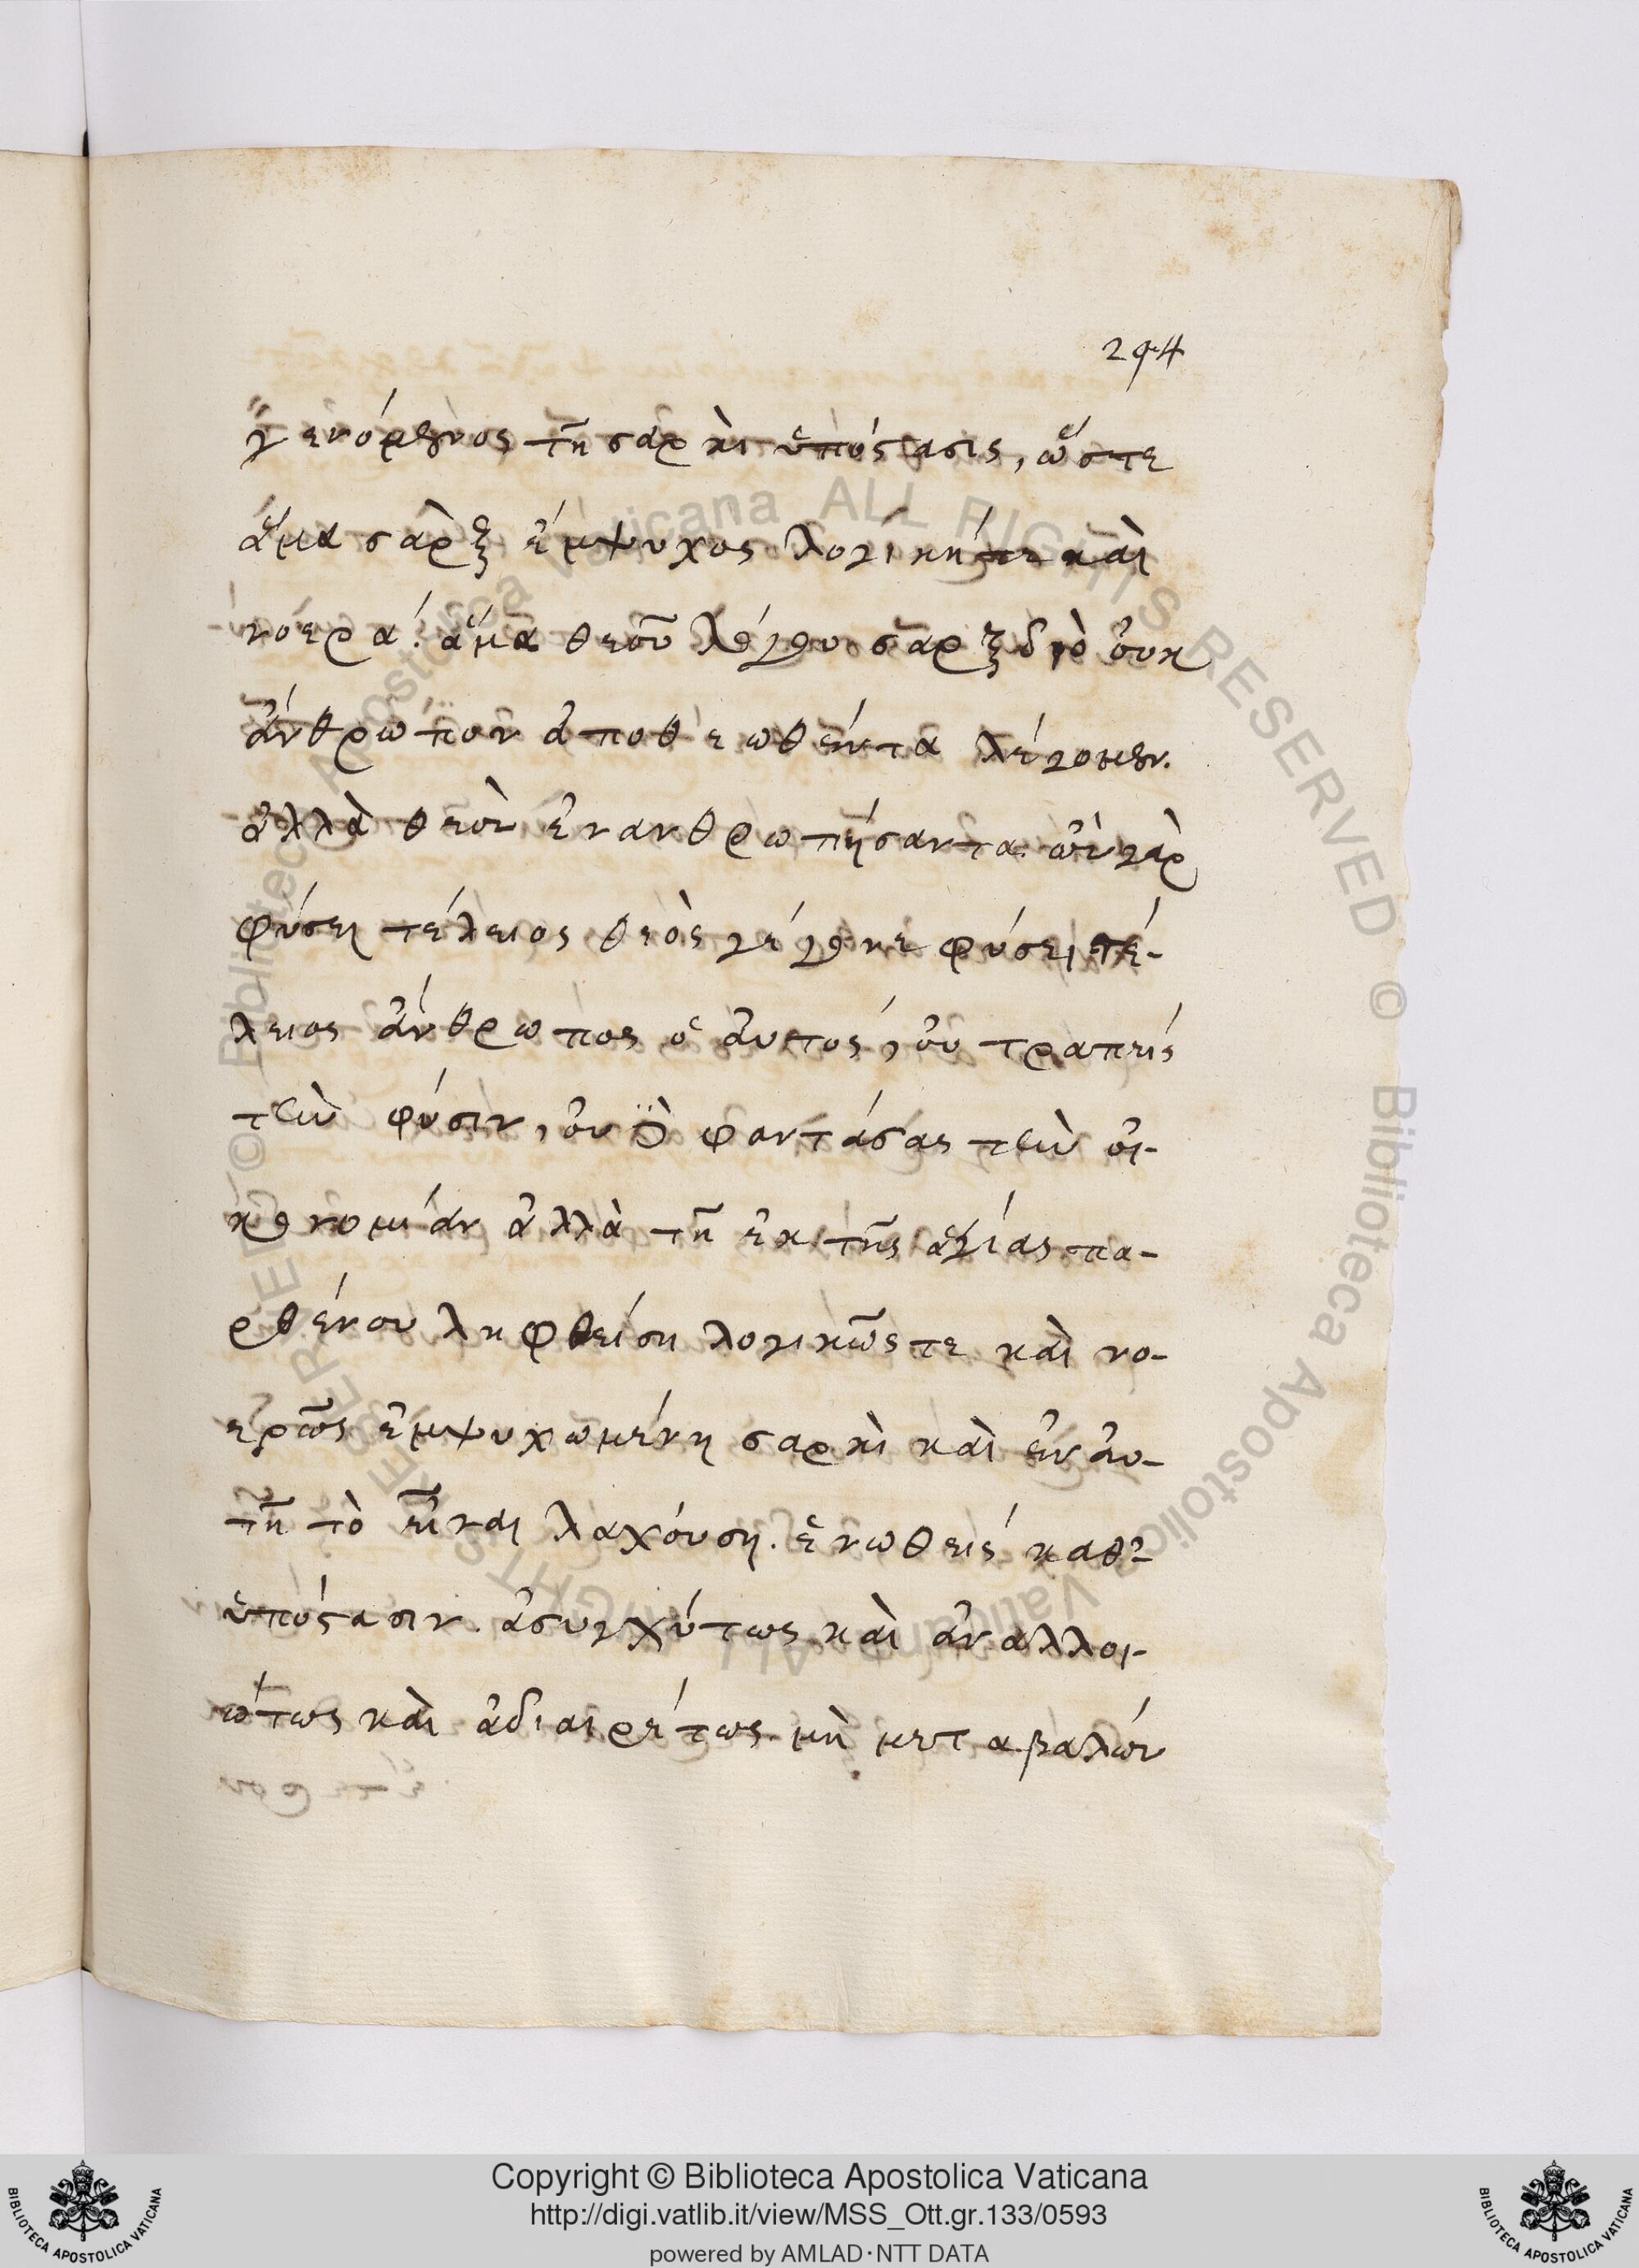 294
γενόμενος τῆ σαρκὶ ὑπόστασις, ὥστε
ἅμα σὰρξ ἔμψυχος λογικήτε καὶ
νοερά. ἅμα θεοῦ λόγου σαρξ διὸ οὐκ
ἄνθρωπον ἀποθεωθέντα λέγομεν.
ἀλλὰ θεὸν ἐνανθρωπήσαντα. ὢν γὰρ
φύσει τέλειος θεὸς γέγονε φύσει τέ-
λειος ἄνθρωπος ὁ ἀυτός, οὐ τραπείς
τὴν φύσιν, οὐδὲ φαντάσας τὴν οἰ-
κονομίαν ἀλλὰ τῆ ἐκ τῆς ἁγίας πα-
ρθένου ληφθείση λογικῶς τε καὶ νο-
ερῶς ἐμψυχωμένη σαρκὶ καὶ ἐν ἀυ-
τῆ τὸ εἶναι λαχόυση. ἑνωθείς καθ'-
ὑπόστασιν. ἀσυγχύτως καὶ ἀναλλοι-
ώτως καὶ ἀδιαιρέτως. μὴ μεταβαλών
Copyright © Biblioteca Apostolica Vaticana
http://digi.vatlib.it/view/MSS_Ott.gr.133/0593
powered by AMLAD·NTT DATA
BIBLIOTECA APOSTOLICA VATICANA
BIBLIOTECA APOSTOLICA VATICANA
© Biblioteca Apostolica Vaticana ALL RIGHTS RESERVED
© Biblioteca Apostolica Vaticana ALL RIGHTS RESERVED